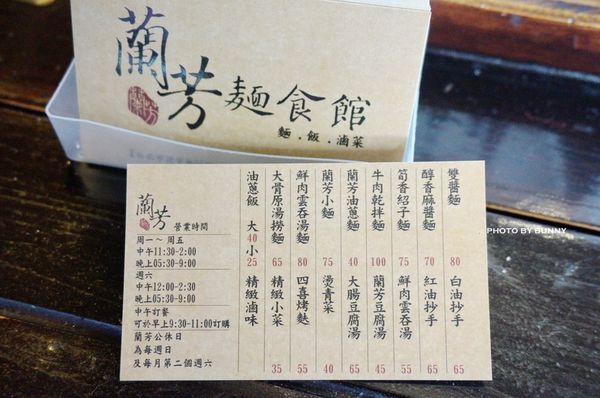 蘭芳麵食館
麵．飯．滷菜
雙醬麵 80
醇香麻醬麵 70
筍香紹子麵 75
牛肉乾拌麵 100
蘭芳油蔥麵 40
蘭芳小麵 75
鮮肉雲吞湯麵 80
大骨原湯撈麵 65
油蔥飯 大40 小25
白油抄手 65
紅油抄手 65
鮮肉雲吞湯 55
蘭芳豆腐湯 45
大腸豆腐湯 65
燙青菜 40
四喜烤麩 55
精緻小菜 35
精緻滷味
蘭芳 營業時間
周一～周五
中午11:30-2:00
晚上05:30-9:00
週六
中午12:00-2:30
晚上05:30-9:00
中午訂餐
可於早上9:30-11:00訂購
蘭芳公休日
為每週日
及每月第二個週六
PHOTO BY BUNNY